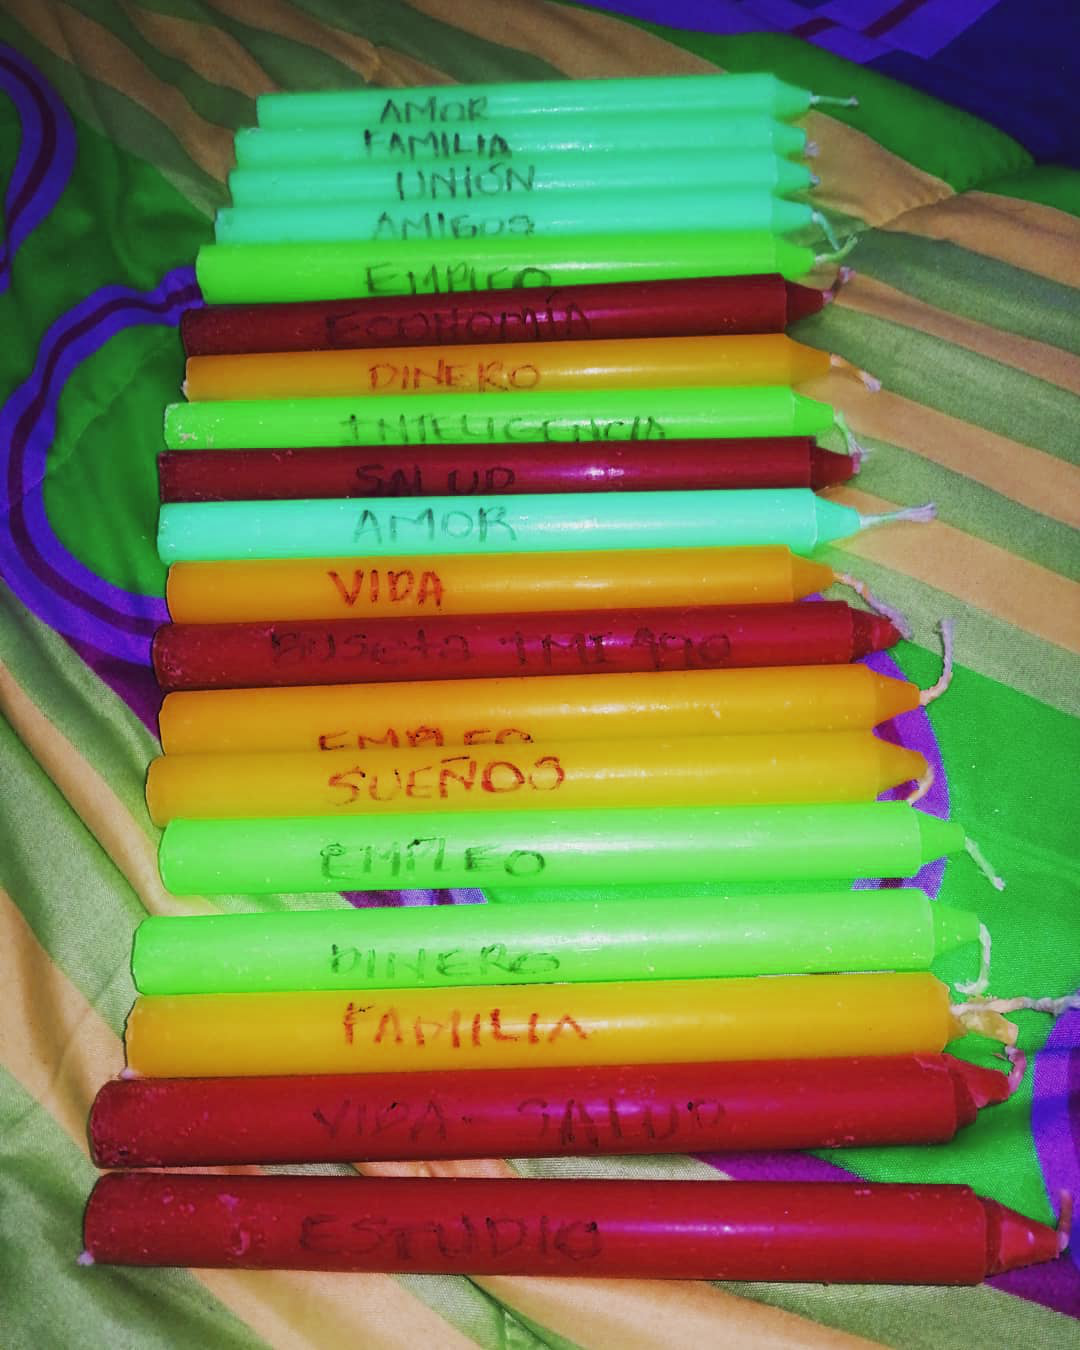 AMOR
FAMILIA
UNIÓN
AMIGOS
EMPLEO
ECONOMÍA
DINERO
INTELIGENCIA
SALUD
AMOR
VIDA
EMPLEO
SUEÑOS
EMPLEO
DINERO
FAMILIA
VIDA - SALUD
ESTUDIO